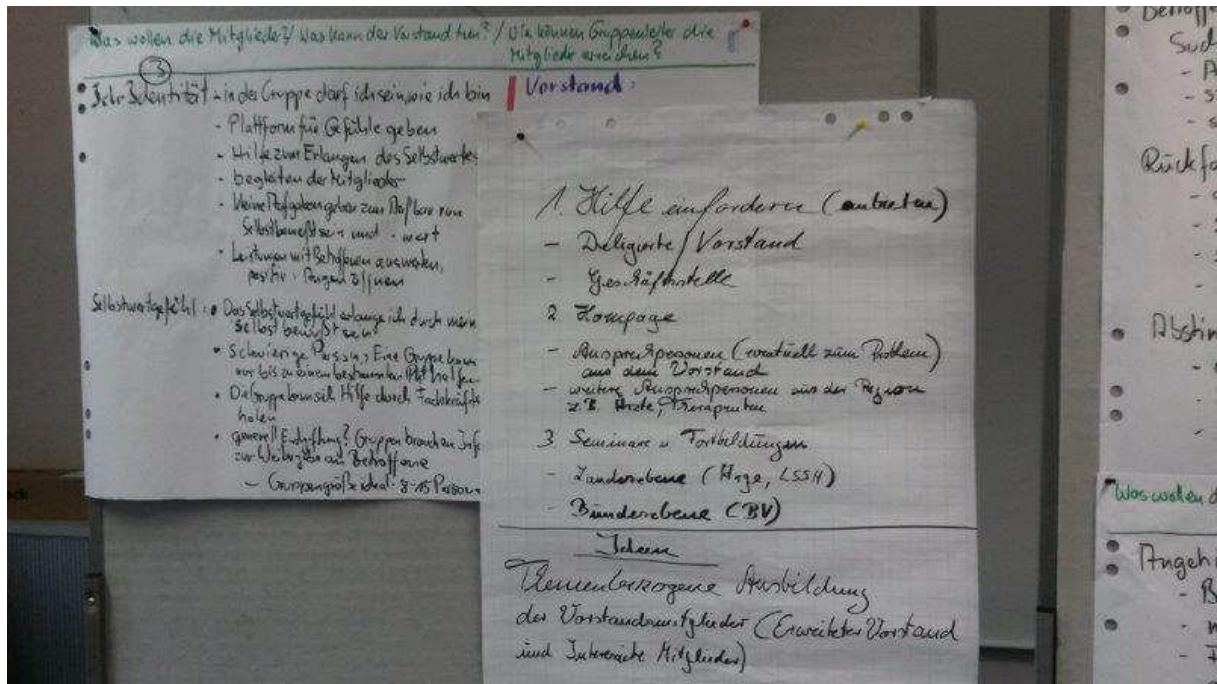 Was wollen die Mitglieder? / Was kann der Vorstand tun? / Wie können Gruppenleiter die
Mitglieder erreichen?
3
Identität - in der Gruppe darf ich sein, wie ich bin
- Plattform für Gefühle geben
- Hilfe zum Erlangen des Selbstwertes
- begleiten der Mitglieder
- kleine Aufgaben geben zum Aufbau von
Selbstbewußtsein und - wert
- Leistungen mit Betroffenen auswerten,
positiv
Selbstwertgefühl: Das Selbstwertgefühl erlange ich durch mein
Selbstbewußtsein
Schwierige Person: Eine Gruppe kann
nur bis zu einem bestimmten helfen
Die Gruppe kann sich Hilfe durch Fachkräfte
holen
generell Gruppen brauchen Info
zur Weitergabe an Betroffene
- Gruppengröße ideal 8-15 Personen
Vorstand:
1. Hilfe einfordern (anbieten)
- Deligierte / Vorstand
- Geschäftsstelle
2 Hompage
- Ansprechpersonen (eventuell zum Problem)
aus dem Vorstand
- weitere Ansprechpersonen aus der Region
z.B. Ärzte, Therapeuten
3 Seminare u Fortbildungen
- Landesebene (LSSH)
- Bundesebene (BV)
Ideen
Themenbezogene Ausbildung
der Vorstandsmitglieder (Erweiteter Vorstand
und Mitglieder)
Such
Rückfa
Abstin
Was wollen d
Angehö